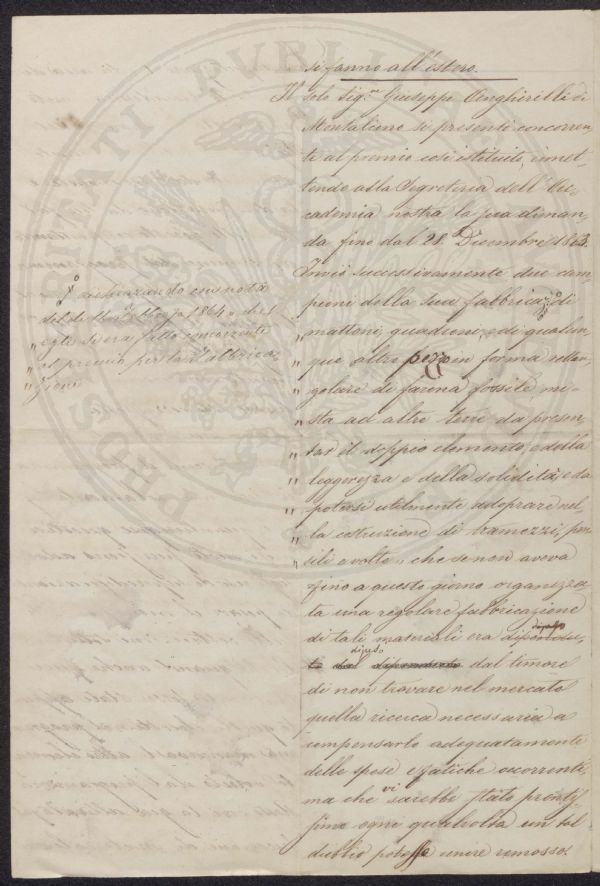 si fanno all'estero.
Il solo Sig.r Giuseppe di
Montalcino si presentò concorren
te al premio così istituito, inviet
tendo alla Segreteria dell'Ac
cademia nostra la sua diman,
da fino dal 28. Dicembre 1863.
Inviò successivamente due cam
pioni della sua fabbrica di
mattoni, quadrene, e di qualun
que altro pezzo in forma rettan,
golare di farina fossile mi
sta ad altre terre da presen,
tar il doppio elemento, e della
leggerezza e della solidità, e da
potersi utilmente adoprare nel
la costruzione di tramezzi,
sili e volte „ che se non aveva
fino a questo giorno organizza
ta una regolare fabbricazione
di tali materiali era
dipeso dal timore
di non trovare nel mercato
quella ricerca necessaria a
compensarlo adeguatamente
delle spese e fatiche occorrenti,
ma che vi sarebbe stato prontis
simo ogni qualvolta un tal
dubbio potesse venire remosso.
dichiarando con nota
del dì 1864 „ che
„ egli si era fatto concorrente
„ al premio per la fabbrica
„ zione